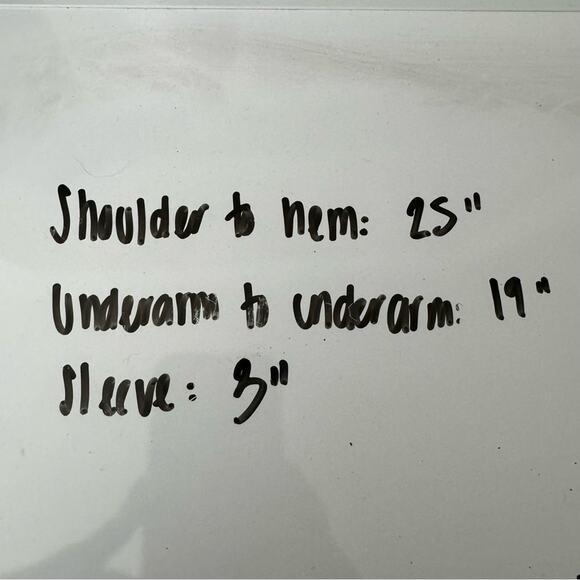 Shoulder to hem: 25"
Underarm to underarm: 19"
Sleeve: 3"